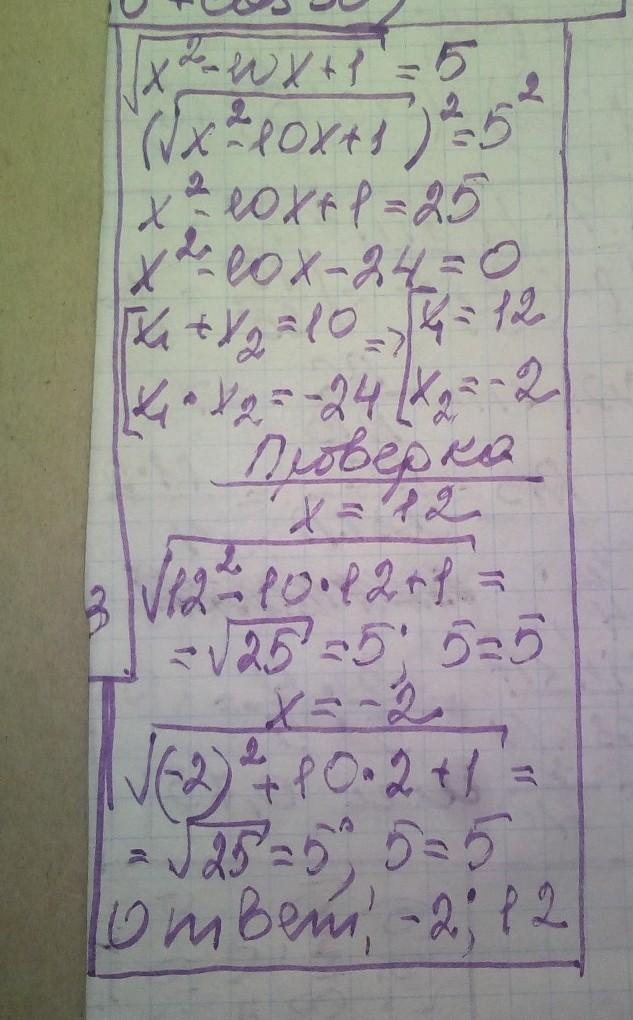 √x²-10x+1 = 5
(√x²-10x+1)² = 5²
x²-10x+1 = 25
x²-10x-24 = 0
[x₁ + x₂ = 10 => [x₁ = 12
[x₁ · x₂ = -24 [x₂ = -2
Проверка
x = 12
√12²-10·12+1 =
= √25 = 5; 5 = 5
x = -2
√(-2)²+10·2+1 =
= √25 = 5; 5 = 5
Ответ: -2; 12